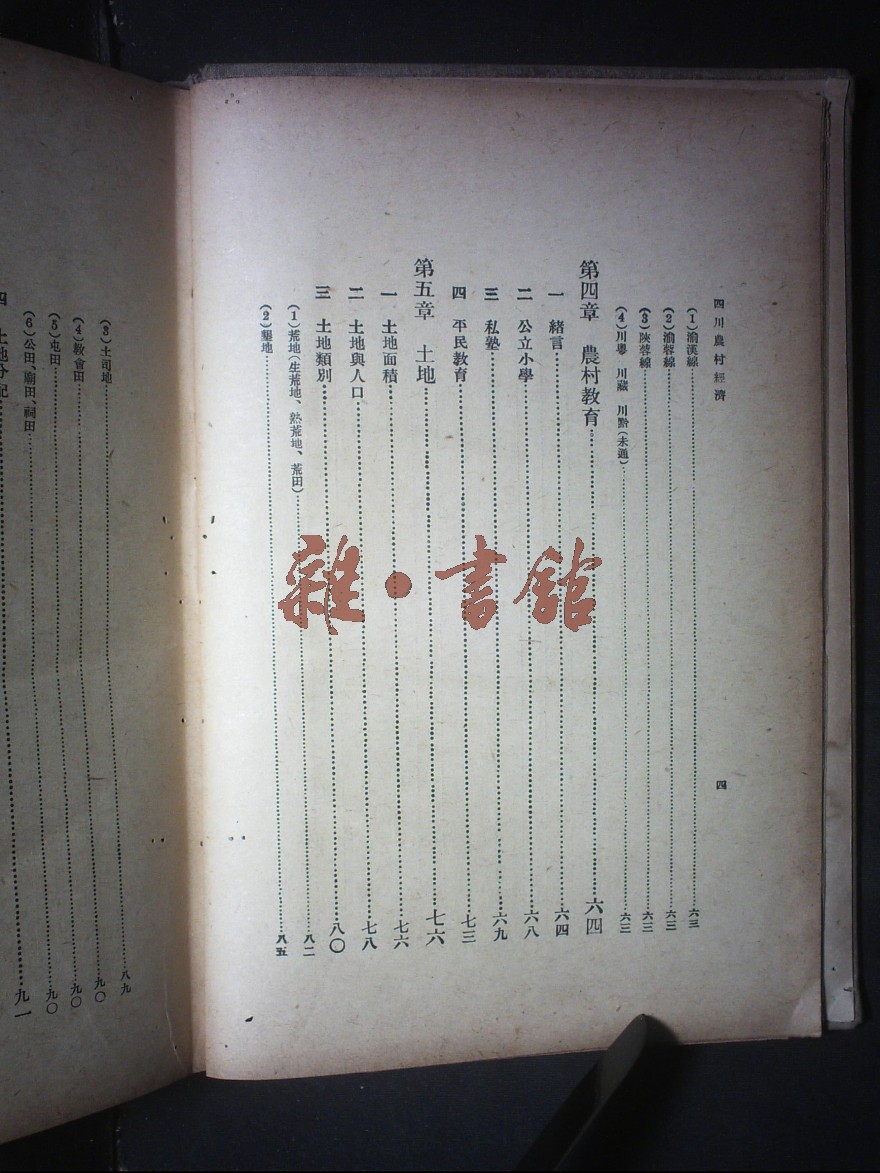 四川農村經濟
四
（1）渝溪線……六三
（2）渝蓉線……六三
（3）陝蓉線……六三
（4）川鄂 川藏 川黔（未通）……六三
第四章 農村教育……六四
一 緒言……六四
二 公立小學……六八
三 私塾……六九
四 平民教育……七三
第五章 土地……七六
一 土地面積……七六
二 土地與人口……七八
三 土地類別……八〇
（1）荒地（生荒地、熟荒地、荒田）……八二
（2）墾地……八五
（3）土司地……八九
（4）教會田……九〇
（5）屯田……九〇
（6）公田、廟田、祠田……九一
四 土地分配
雜·書館